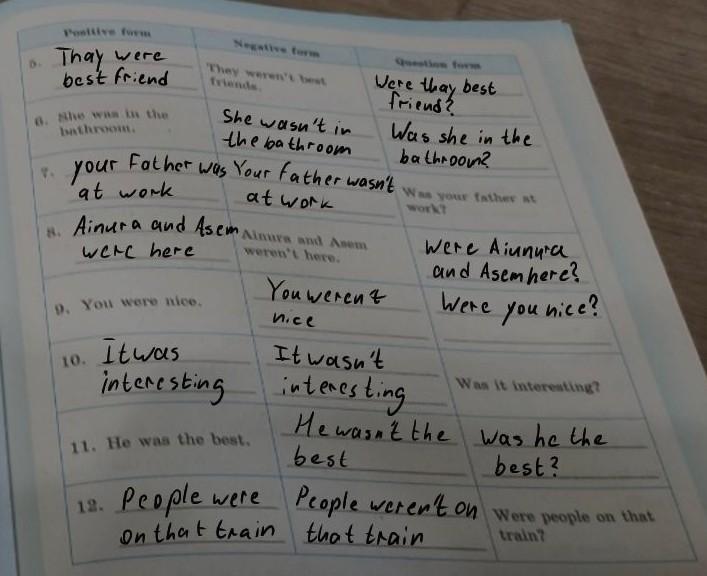 Positive form
Negative form
Question form
5. Thay were
best friend
They weren't best
friends.
Were thay best
friend?
6. She was in the
bathroom.
She wasn't in
the bathroom
Was she in the
bathroom?
7. your Father was
at work
Your father wasn't
at work
Was your father at
work?
8. Ainura and Asem
were here
Ainura and Asem
weren't here.
Were Aiunura
and Asem here?
9. You were nice.
You weren't
nice
Were you nice?
10. It was
interesting
It wasn't
interesting
Was it interesting?
11. He was the best.
He wasn't the
best
was he the
best?
12. People were
on that train
People weren't on
that train
Were people on that
train?